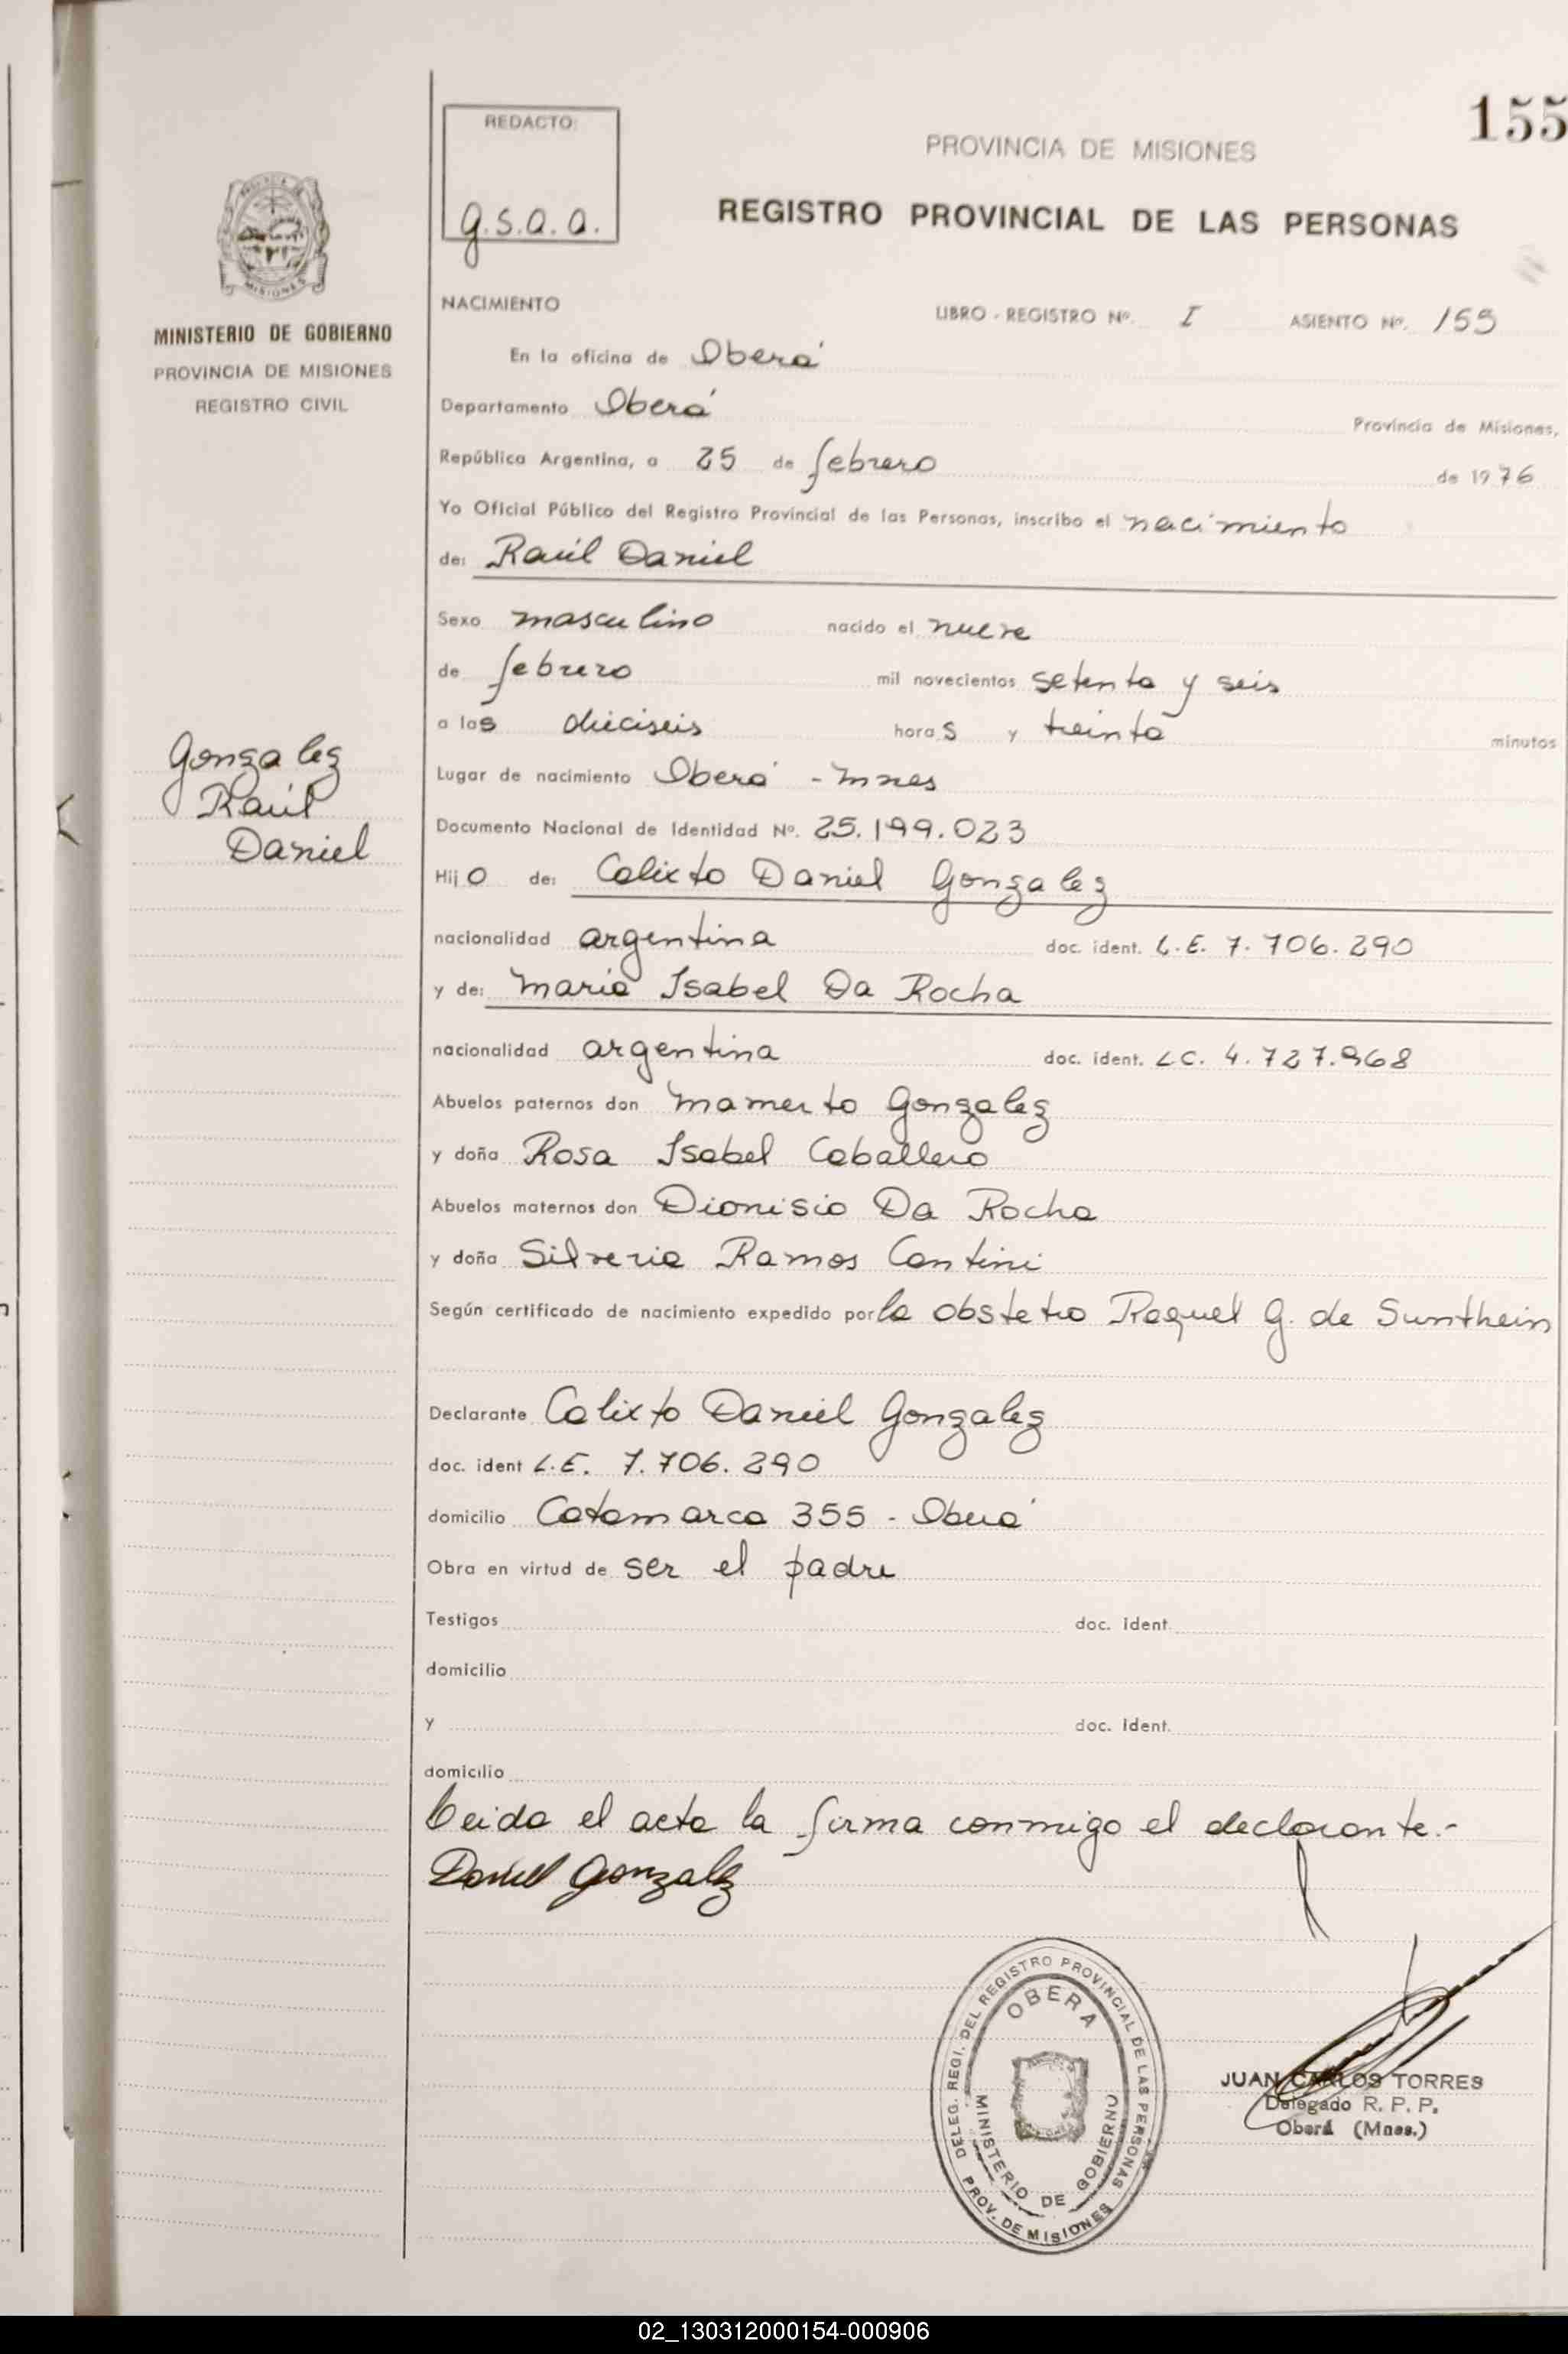 155
REDACTO:
g.s.a.a.
PROVINCIA DE MISIONES
REGISTRO PROVINCIAL DE LAS PERSONAS
MISIONES
MINISTERIO DE GOBIERNO
PROVINCIA DE MISIONES
REGISTRO CIVIL
Gonzalez
Raúl
Daniel
NACIMIENTO LIBRO - REGISTRO Nº. I ASIENTO Nº. 155
En la oficina de Oberá
Departamento Oberá Provincia de Misiones,
República Argentina, a 25 de febrero de 1976
Yo Oficial Público del Registro Provincial de las Personas, inscribo el nacimiento
de: Raúl Daniel
Sexo masculino nacido el nueve
de febrero mil novecientos setenta y seis
a las dieciseis horas y treinta minutos
Lugar de nacimiento Oberá - Mnes
Documento Nacional de Identidad Nº. 25.199.023
Hijo de: Calixto Daniel Gonzalez
nacionalidad argentina doc. ident. L.E. 7.706.290
y de: Maria Isabel Da Rocha
nacionalidad argentina doc. ident. L.C. 4.727.968
Abuelos paternos don Mamerto Gonzalez
y doña Rosa Isabel Caballero
Abuelos maternos don Dionisio Da Rocha
y doña Silveria Ramos Contini
Según certificado de nacimiento expedido por la obstetra Raquel G. de Sunthein
Declarante Calixto Daniel Gonzalez
doc. ident L.E. 7.706.290
domicilio Catamarca 355 - Oberá
Obra en virtud de ser el padre
Testigos doc. ident.
domicilio
y doc. ident.
domicilio
Leida el acta la firma conmigo el declarante.-
Daniel Gonzalez
DELEG. REGI. DEL REGISTRO PROVINCIAL DE LAS PERSONAS
OBERA
MINISTERIO DE GOBIERNO
PROV. DE MISIONES
JUAN CARLOS TORRES
Delegado R. P. P.
Oberá (Mnes.)
02_130312000154-000906